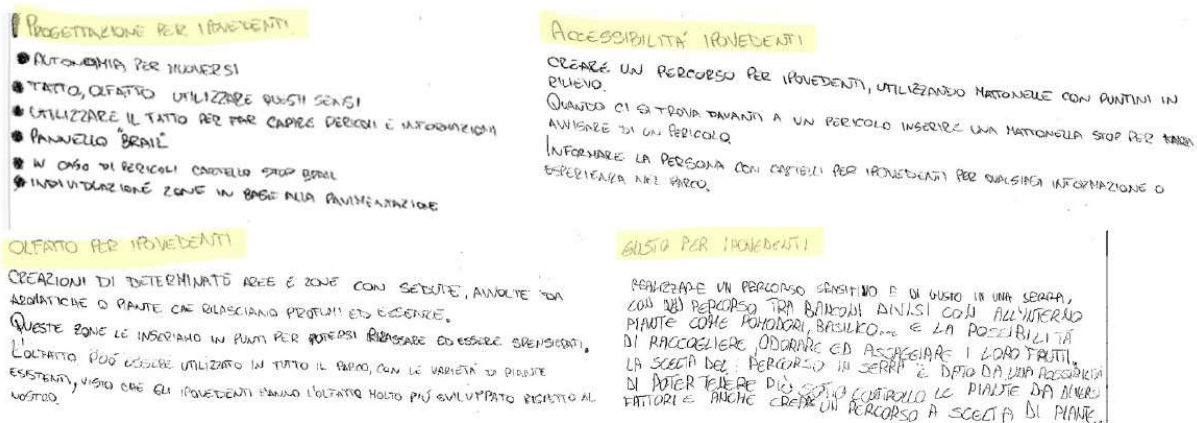 PROGETTAZIONE PER IPOVEDENTI
AUTONOMIA PER MUOVERSI
TATTO, OLFATTO UTILIZZARE QUESTI SENSI
UTILIZZARE IL TATTO PER FAR CAPIRE PERICOLI E INFORMAZIONI
PANNELLO "BRAIL"
IN CASO DI PERICOLI CARTELLO STOP BRAIL
INDIVIDUAZIONE ZONE IN BASE ALLA PAVIMENTAZIONE
ACCESSIBILITÀ IPOVEDENTI
CREARE UN PERCORSO PER IPOVEDENTI, UTILIZZANDO MATTONELLE CON PUNTINI IN
RILIEVO.
QUANDO CI SI TROVA DAVANTI A UN PERICOLO INSERIRE UNA MATTONELLA STOP PER
AVVISARE DI UN PERICOLO.
INFORMARE LA PERSONA CON CARTELLI PER IPOVEDENTI PER QUALSIASI INFORMAZIONE O
ESPERIENZA NEL PARCO.
OLFATTO PER IPOVEDENTI
CREAZIONI DI DETERMINATE AREE E ZONE CON SEDUTE, AVVOLTE DA
AROMATICHE O PIANTE CHE RILASCIANO PROFUMI ED ESSENZE.
QUESTE ZONE LE INSERIAMO IN PUNTI PER POTERSI RILASSARE ED ESSERE SPENSIERATI.
L'OLFATTO PUÒ ESSERE UTILIZZATO IN TUTTO IL PARCO, CON LE VARIETÀ DI PIANTE
ESISTENTI, VISTO CHE GLI IPOVEDENTI HANNO L'OLFATTO MOLTO PIÙ SVILUPPATO RISPETTO AL
NOSTRO.
GUSTO PER IPOVEDENTI
REALIZZARE UN PERCORSO SENSITIVO E DI GUSTO IN UNA SERRA,
CON PERCORSO TRA BANCONI DIVISI CON ALL'INTERNO
PIANTE COME POMODORI, BASILICO... E LA POSSIBILITÀ
DI RACCOGLIERE, ODORARE ED ASSAGGIARE I LORO FRUTTI.
LA SCELTA DEL PERCORSO IN SERRA È DATO DA UNA POSSIBILITÀ
DI POTER TENERE PIÙ SOTTO CONTROLLO LE PIANTE DA DIVERSI
FATTORI E ANCHE CREARE UN PERCORSO A SCELTA DI PIANTE.